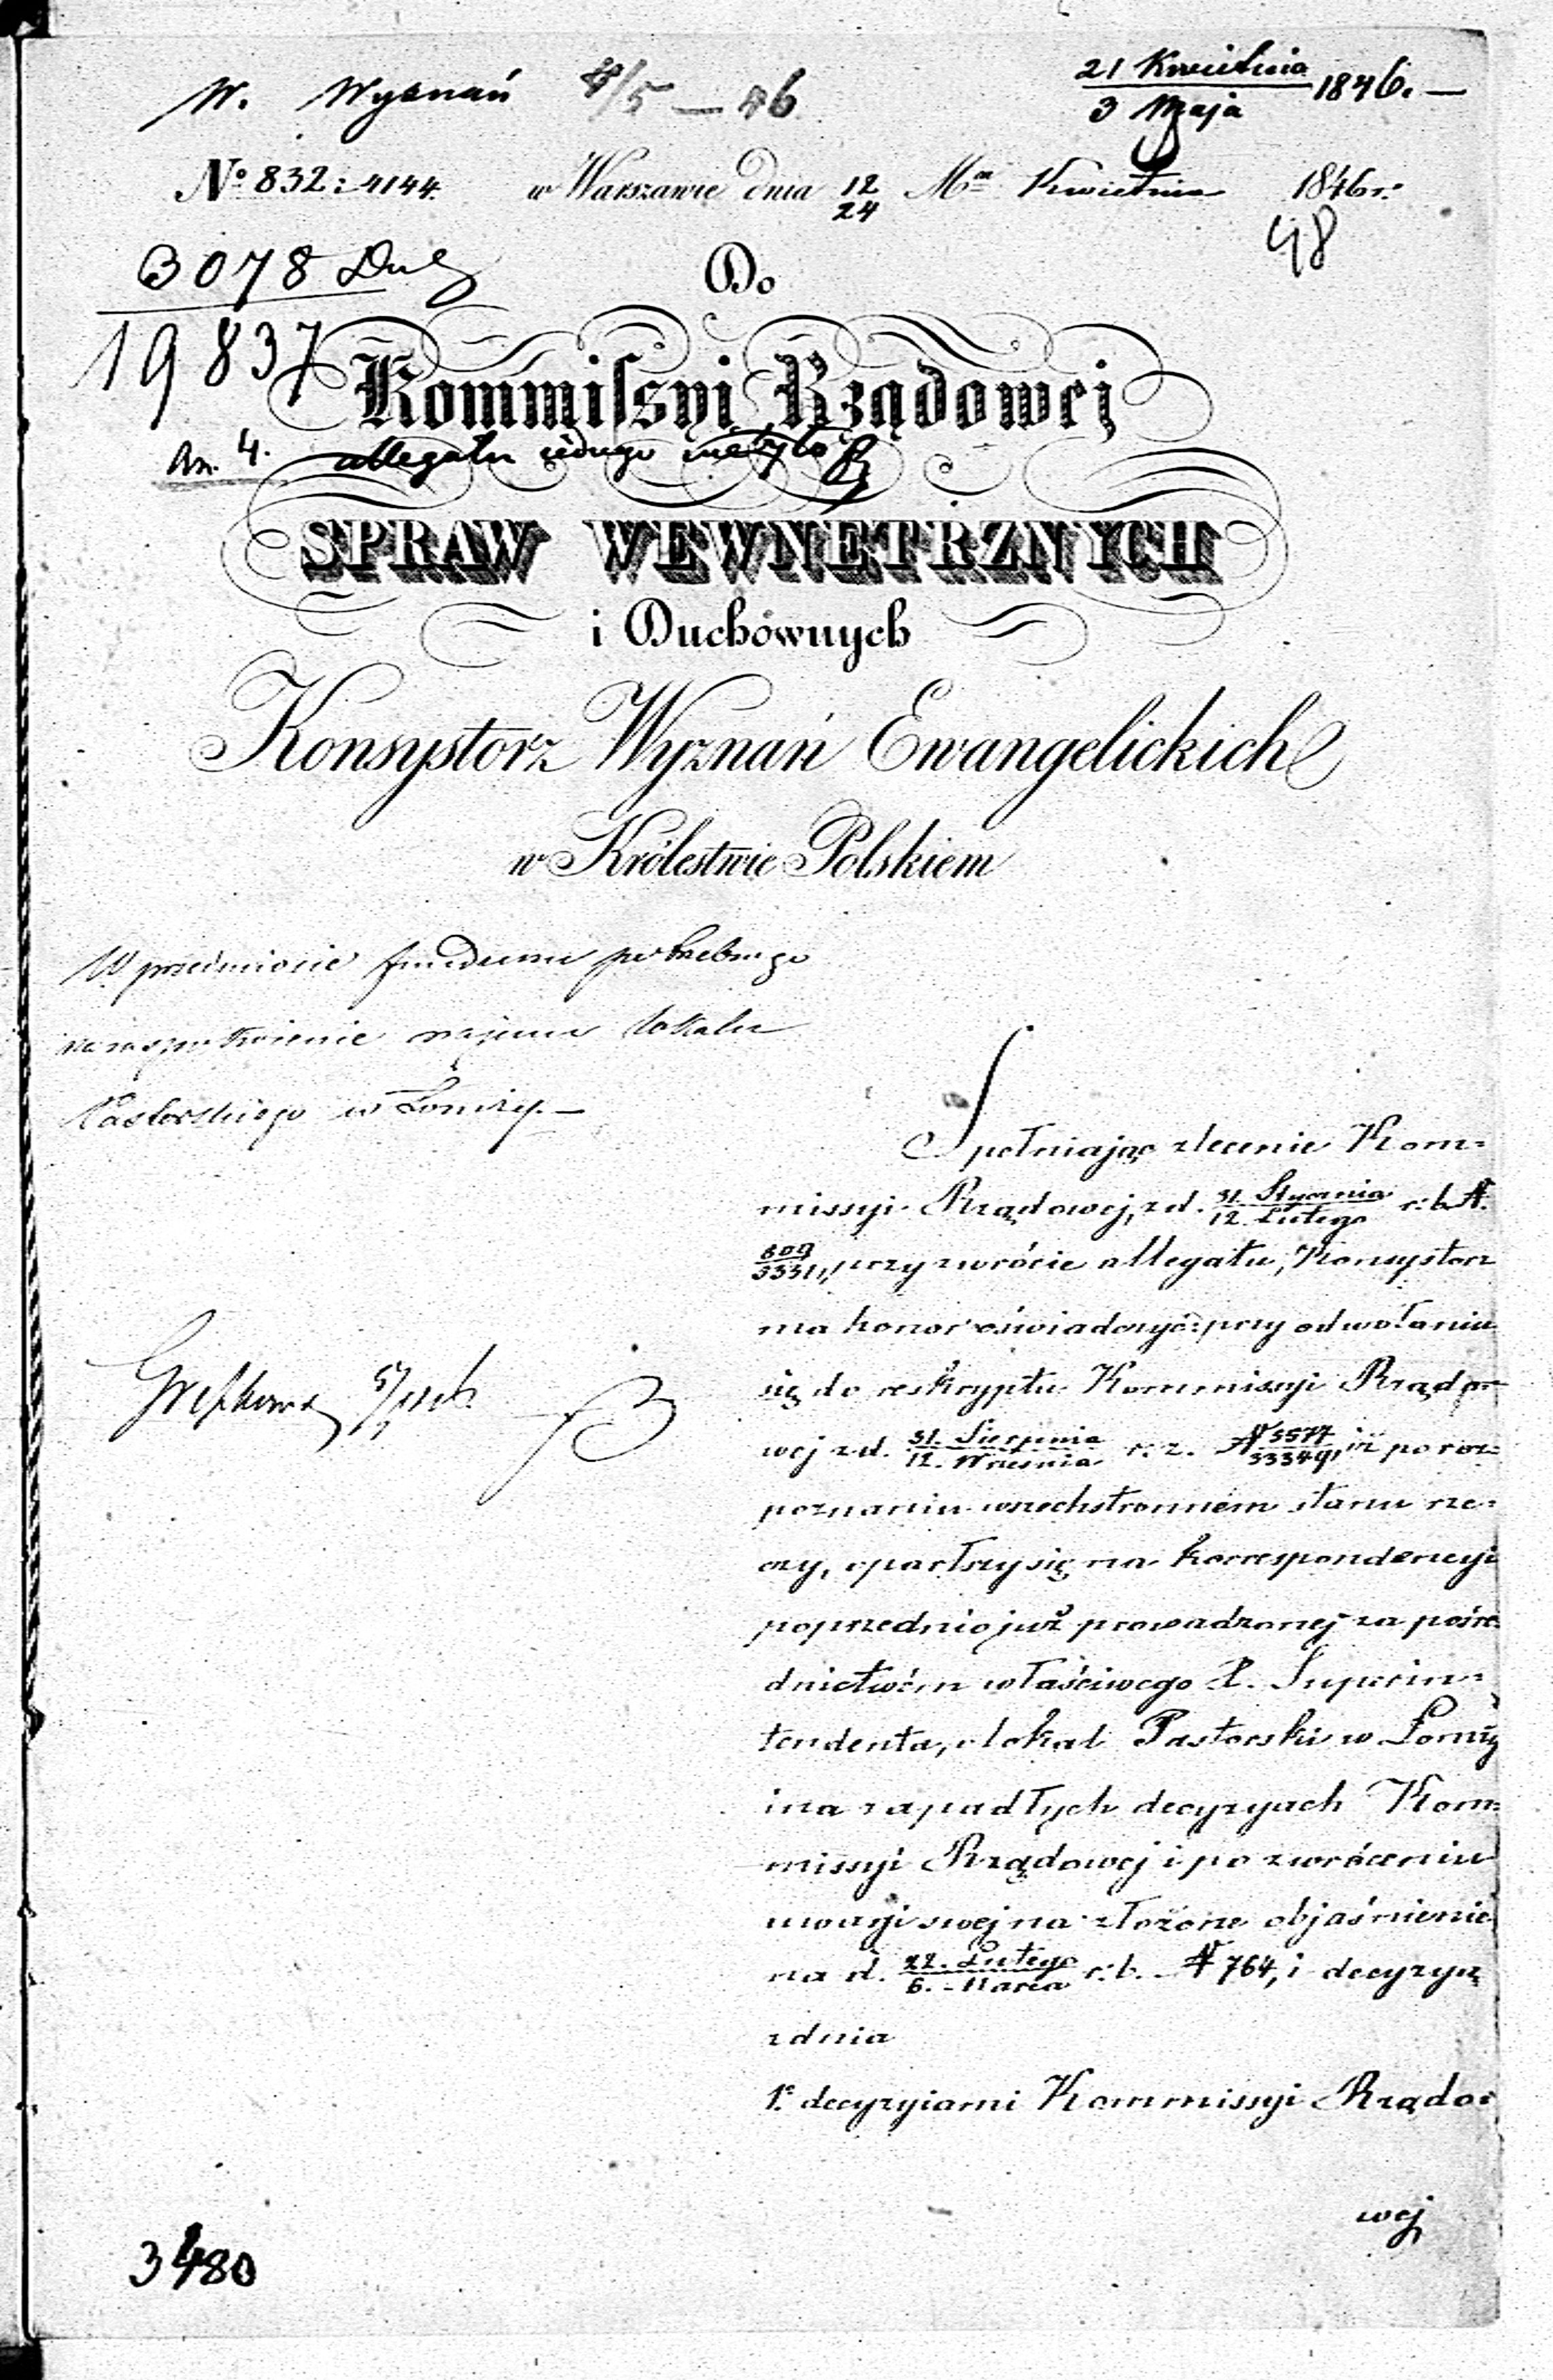 W. Wyznań 4/5 — 46
21 Kwietnia
3 Maja 1846. —
No 832: 4144. w Warszawie dnia 12/24 Mca Kwietnia 1846 r.
48
3078
19837
Do
Kommissyi Rządowej
An. 4. allegatu jednego nie było
SPRAW WEWNĘTRZNYCH
i Duchównych
Konsystorz Wyznań Ewangelickich
w Królestwie Polskiem
W przedmiocie funduszu potrzebnego
na zaspokojenie najmu lokalu
Pastorskiego w Łomży. —
Spełniając zlecenie Kom=
missyi Rządowej, z d. 31. Stycznia/12. Lutego r. b. N.
609/3331, przy zwrócie allegatu, Konsystorz
ma honor oświadczyć: przy odwołaniu
się do reskryptu Kommissyi Rządo=
wej z d. 31. Sierpnia/12. Września r. z. N 5577/33349, iż po roz=
poznaniu wszechstronnem stanu rze=
czy, oparłszy się na korrespondencyi
poprzednio już prowadzonej za pośre=
dnictwém właściwego X. Superin=
tendenta, o lokal Pastorski w Łomży
i na zapadłych decyzyach Kom=
missyi Rządowej i po zwróceniu
uwagi swej na złożone objaśnienie
na d. 22. Lutego/6. Marca r. b. N 764, i decyzyą
z dnia
1º decyzyiami Kommissyi Rządo=
wej
3480